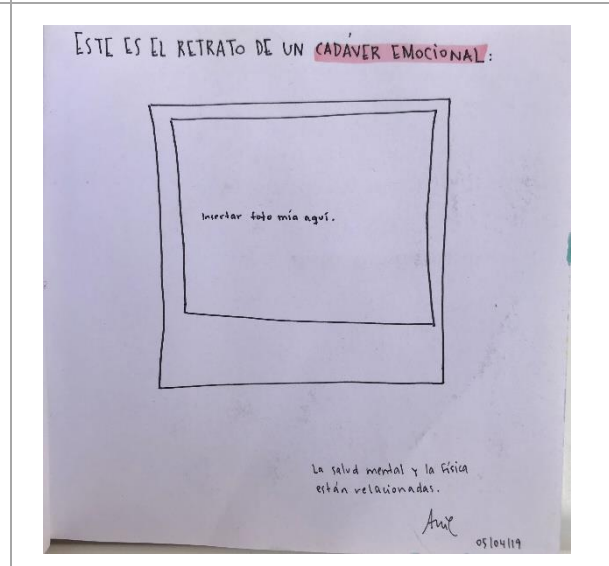 ESTE ES EL RETRATO DE UN CADÁVER EMOCIONAL:
Insertar foto mía aquí.
La salud mental y la física
están relacionadas.
05/04/19